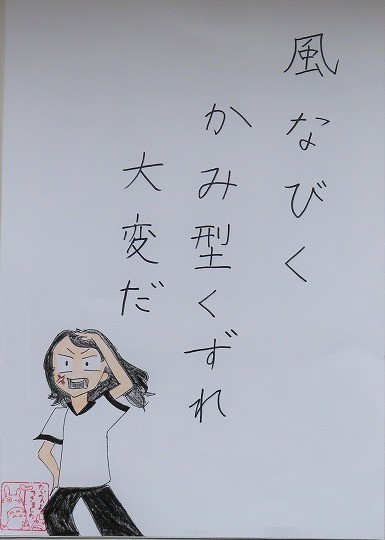 風なびく
かみ型くずれ
大変だ